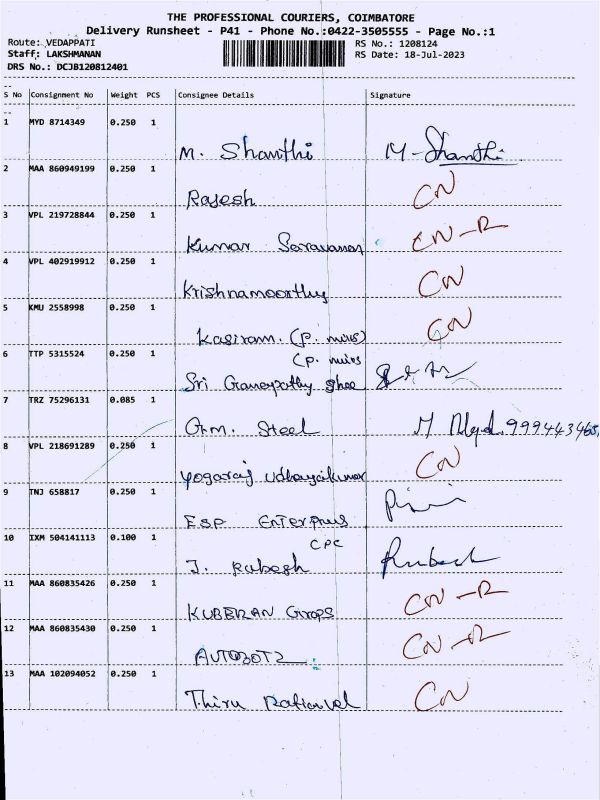 THE PROFESSIONAL COURIERS, COIMBATORE
Delivery Runsheet - P41 - Phone No.:0422-3505555 - Page No.:1
Route: VEDAPPATI RS No.: 1208124
Staff: LAKSHMANAN RS Date: 18-Jul-2023
DRS No.: DCJB120812401
S No Consignment No Weight PCS Consignee Details Signature
1 MYD 8714349 0.250 1
M. Shanthi M-Shanthi
2 MAA 860949199 0.250 1
Rajesh CN
3 VPL 219728844 0.250 1
Kumar Saravanan CN-R
4 VPL 402919912 0.250 1
Krishnamoorthy CN
5 KMU 2558998 0.250 1
Kasiram. (P. mills) CN
6 TTP 5315524 0.250 1
(P. mills
Sri Ganapathy ghee
7 TRZ 75296131 0.085 1
G.m. Steel M
8 VPL 218691289 0.250 1
Yogaraj Udhayakumar CN
9 TNJ 658817 0.250 1
ESP Enterprises
10 IXM 504141113 0.100 1
CPC
J. Rubesh Rubesh
11 MAA 860835426 0.250 1
KUBERAN Grops CN-R
12 MAA 860835430 0.250 1
AUTOBOTZ CN-R
13 MAA 102094052 0.250 1
Thiru Rationvel CN